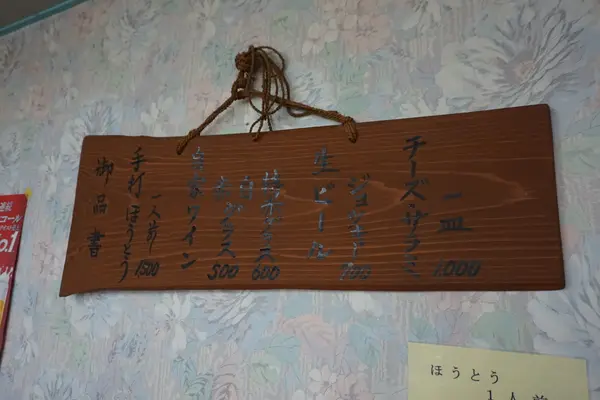 御品書
手打ほうとう
一人前 1500
自家ワイン
グラス 500
グラス 600
生ビール
ジョッキ 700
チーズ・サラミ
一皿 1,000
コール
o.1
ほうとう
1人前